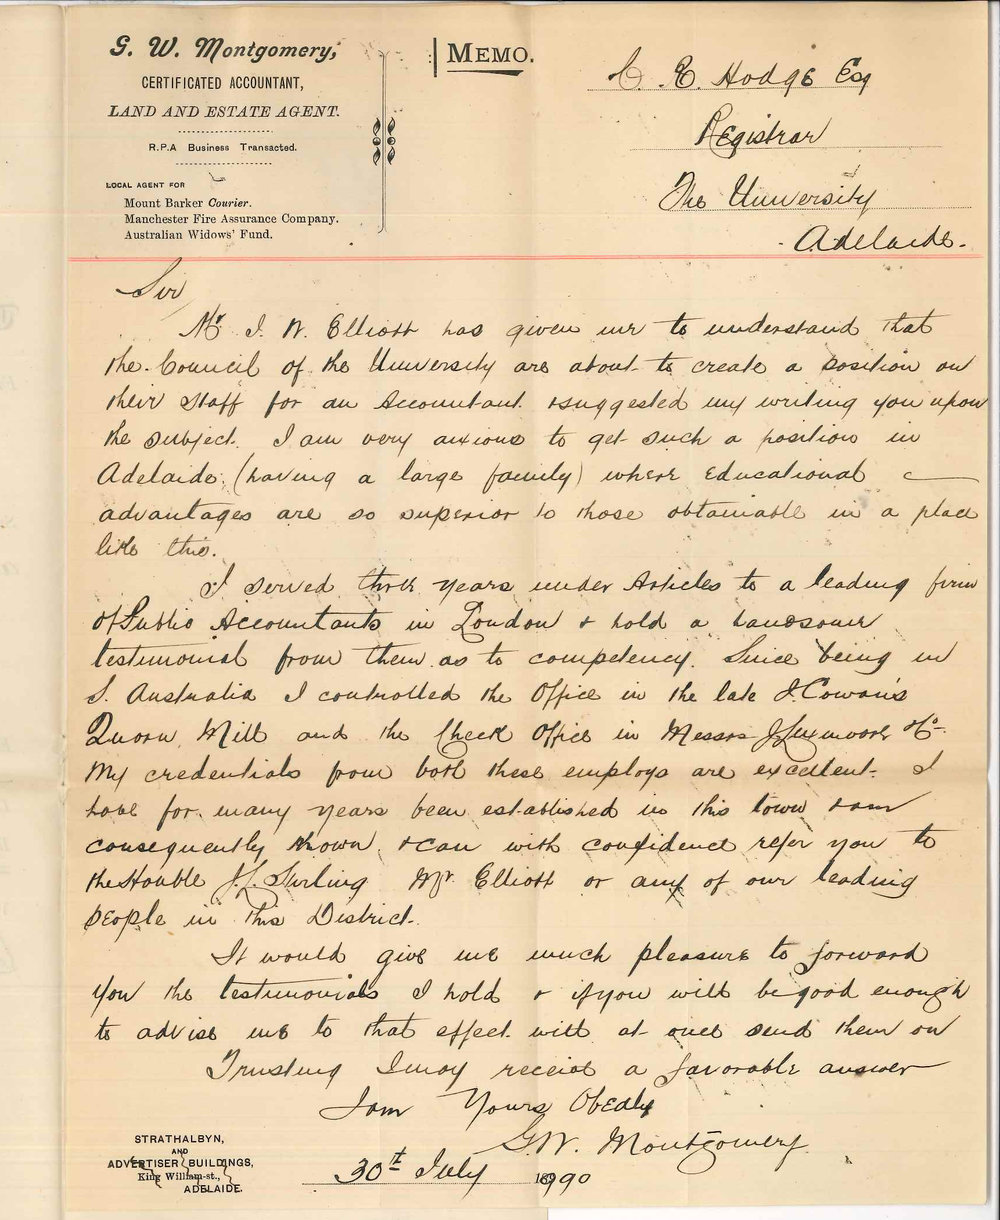 G. W. Montgomery,
CERTIFICATED ACCOUNTANT,
LAND AND ESTATE AGENT.
R.P.A Business Transacted.
LOCAL AGENT FOR
Mount Barker Courier.
Manchester Fire Assurance Company.
Australian Widows' Fund.
MEMO.
C. E. Hodge Esq
Registrar
The University
Adelaide.
Sir
Mr J. W. Elliott has given me to understand that
the Council of the University are about to create a position on
their staff for an Accountant & suggested my writing you upon
the subject. I am very anxious to get such a position in
Adelaide (having a large family) where educational
advantages are so superior to those obtainable in a place
like this.
I served three years under Articles to a leading firm
of Public Accountants in London & hold a handsome
testimonial from them as to competency. Since being in
S. Australia I controlled the Office in the late J. Cowan's
Quorn Mill and the Check Office in Messrs J. Luxmoore & Co.
My credentials from both these employs are excellent. I
have for many years been established in this town & am
consequently known & can with confidence refer you to
the Honble J. L. Stirling Mr. Elliott or any of our leading
people in this District.
It would give me much pleasure to forward
you the testimonials I hold & if you will be good enough
to advise me to that effect will at once send them on
Trusting I may receive a favorable answer
I am Yours Obedly
G. W. Montgomery
STRATHALBYN,
AND
ADVERTISER BUILDINGS,
King William-st.,
ADELAIDE.
30th July 1890